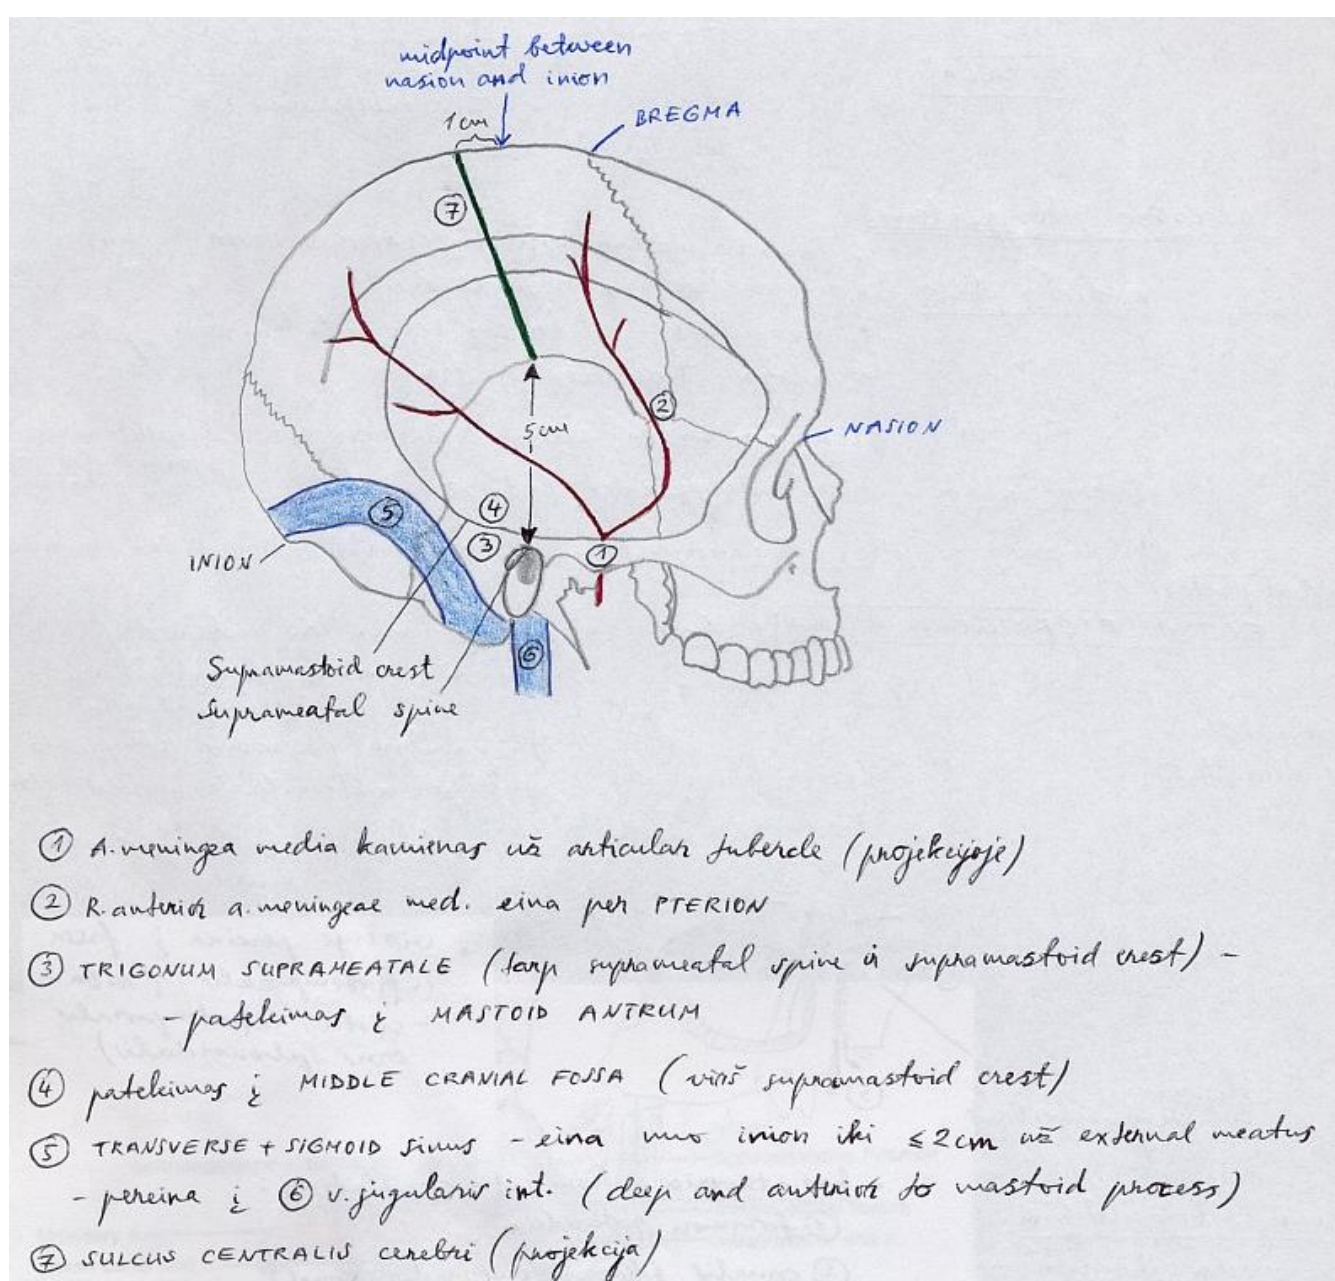 midpoint between
nasion and inion
1cm
BREGMA
7
2
NASION
5cm
4
5
3
1
INION
6
Supramastoid crest
Suprameatal spine
1 A. meningea media kamienas už articular tubercle (projekcijoje)
2 R. anterior a. meningeae med. eina per PTERION
3 TRIGONUM SUPRAMEATALE (tarp suprameatal spine ir supramastoid crest) -
- patekimas į MASTOID ANTRUM
4 patekimas į MIDDLE CRANIAL FOSSA (virš supramastoid crest)
5 TRANSVERSE + SIGMOID sinus - eina nuo inion iki ≤ 2cm už external meatus
- pereina į 6 v. jugularis int. (deep and anterior to mastoid process)
7 SULCUS CENTRALIS cerebri (projekcija)